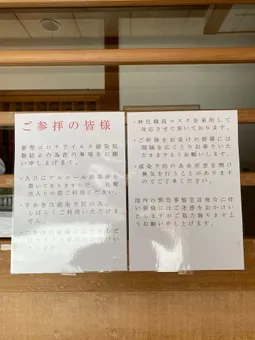 ご参拝の皆様
新型コロナウイルス感染拡
散防止の為次の事項をお願
い申し上げます。
・入口にアルコール消毒液を
置いておりますので、お
の前にご利用ください。
・手水は感染予防の為、
しばらくご利用いただけま
せん。
・神社職員マスクを着用して
対応させて頂いております。
・ご祈祷をお受けの皆様には
間隔を広くとりお座りいた
だきますようお願いします。
・感染予防の為各所窓を開け
換気を行うことがあります
のでご了承ください。
国内の緊急事態宣言発令に伴
い皆様にはご迷惑をおかけい
たしますがご協力賜りますよ
うお願い申し上げます。